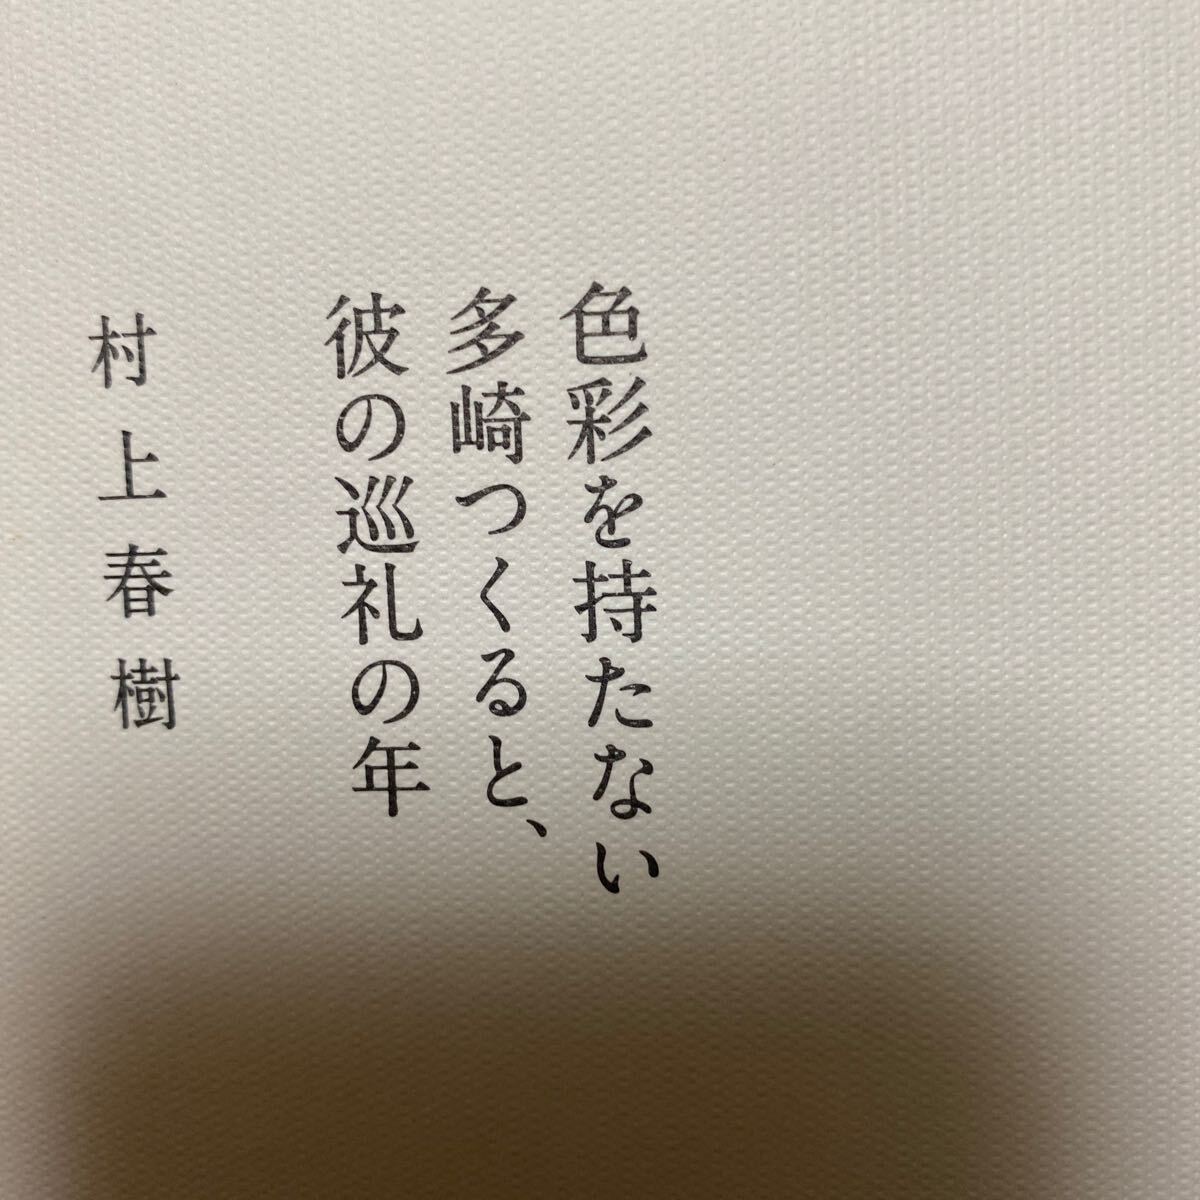 色彩を持たない
多崎つくると、
彼の巡礼の年
村上春樹